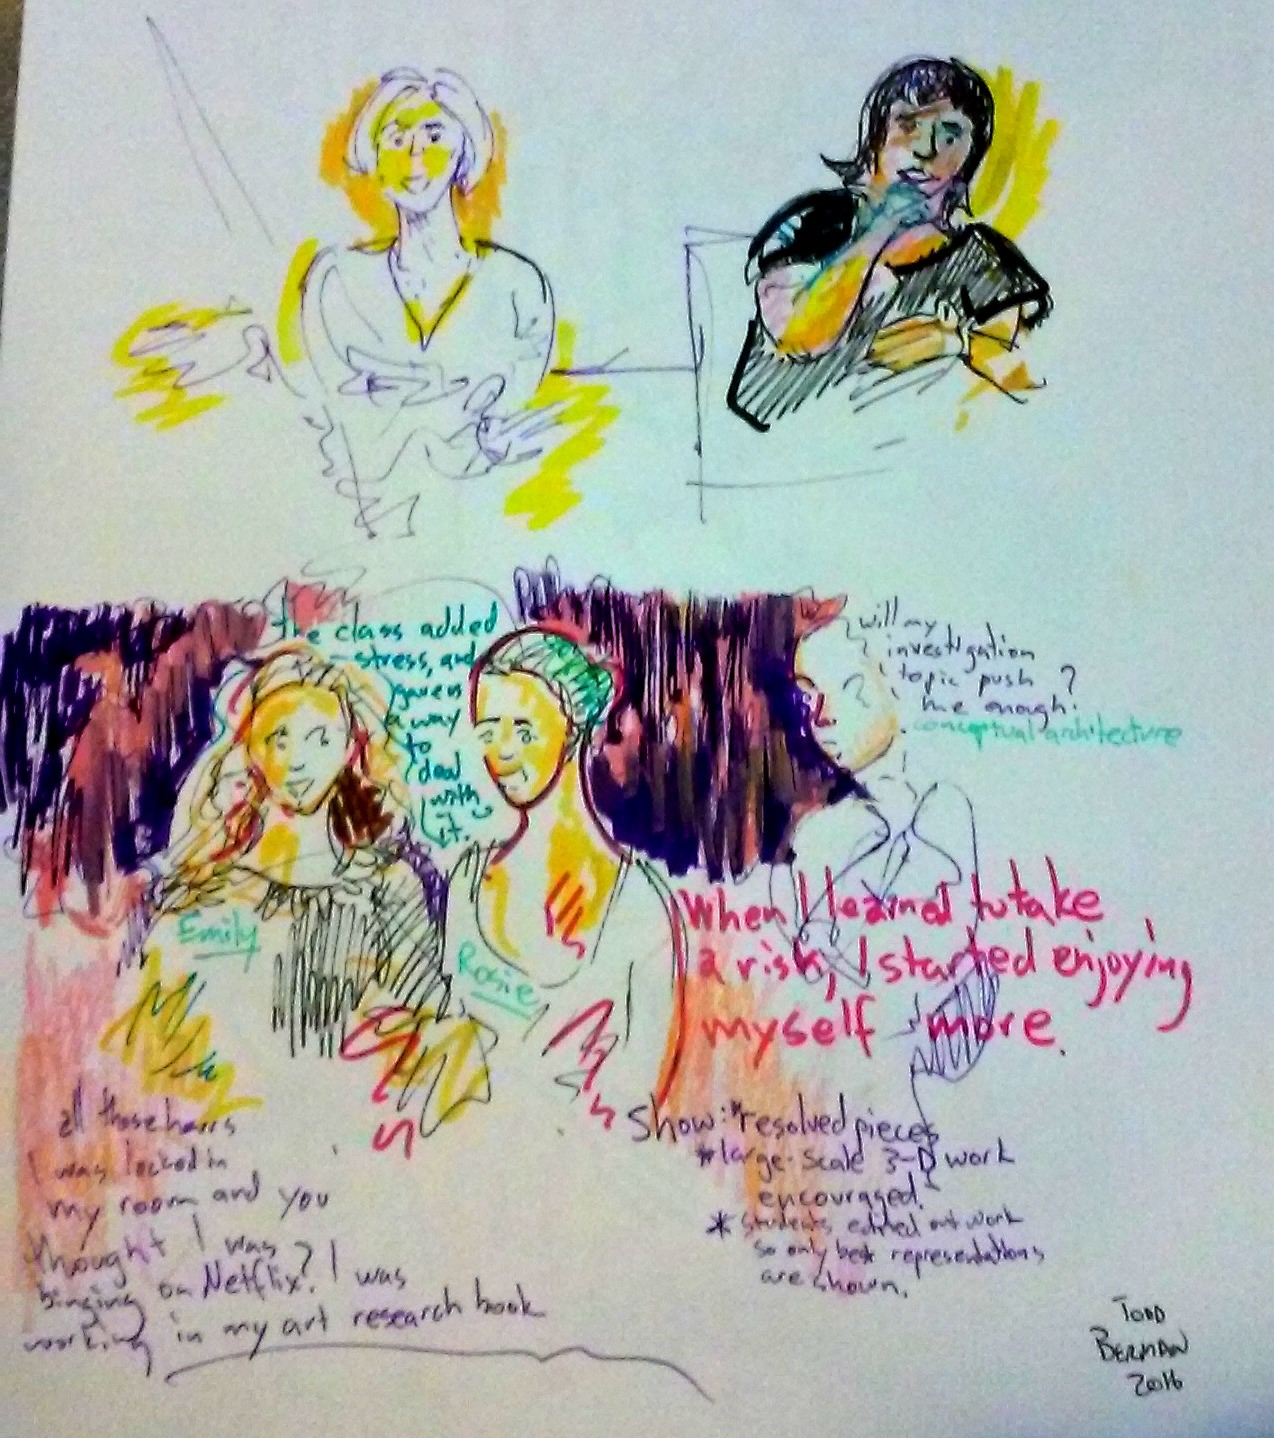 the class added
stress, and
gave us
a way
to
deal
with
it.
will my
investigation
topic push ?
me enough.
conceptual architecture
Emily
Rosie
When I learned to take
a risk, I started enjoying
myself more.
all those hours
I was locked in
my room and you
thought I was
binging on Netflix? I was
working in my art research book
Show: *resolved pieces
*large-scale 3-D work
encouraged.
* Students edited out work
so only best representations
are shown.
TODD
BERMAN
2016